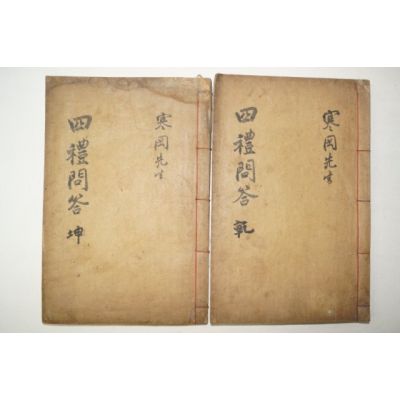 寒岡先生
四禮問答 乾
寒岡先生
四禮問答 坤